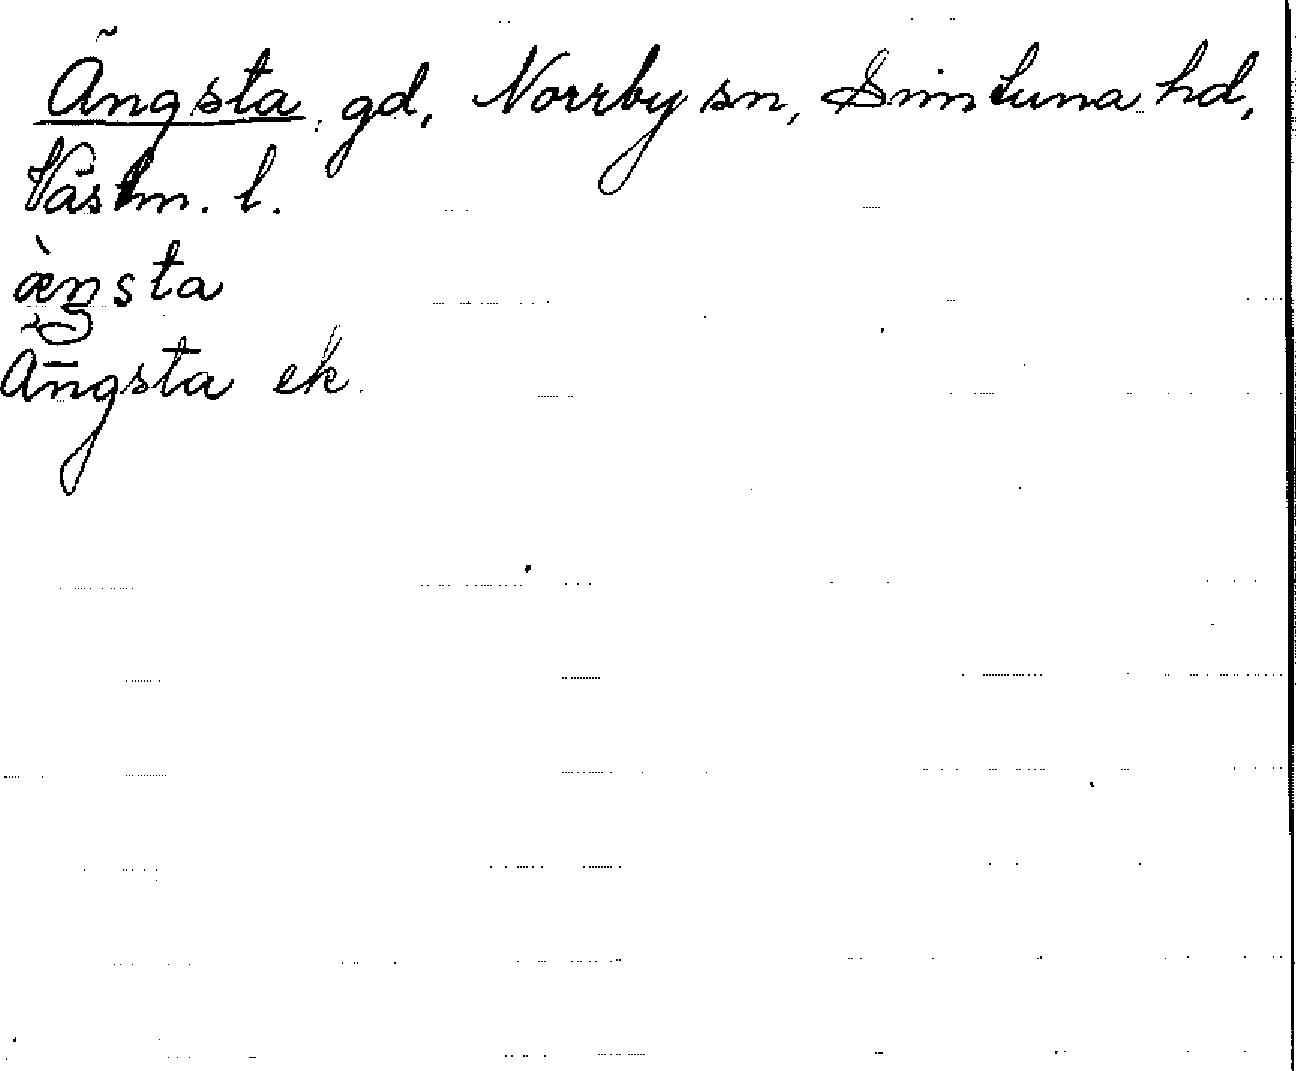 Ängsta gd, Norrby sn, Simtuna hd,
Västm. l.
æ̀ŋsta
Ängsta ek